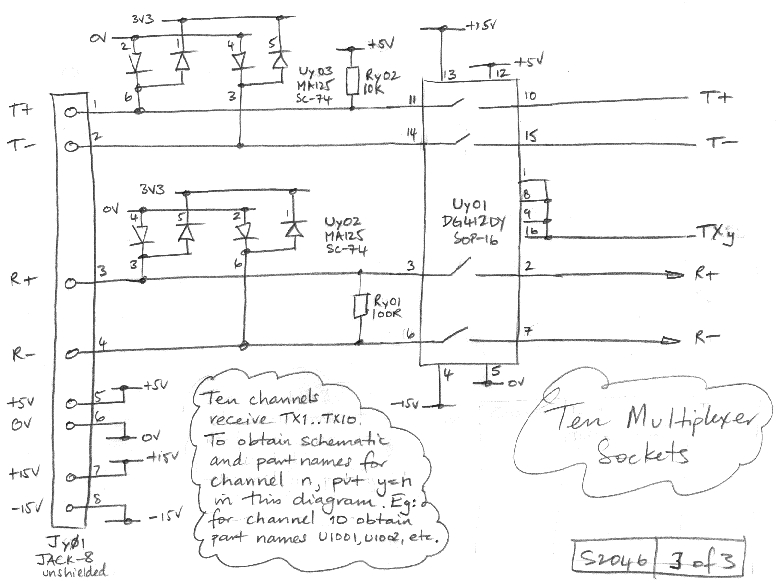 3V3
0V
2
1
4
5
6
3
Uy03
MA125
SC-74
+5V
Ry02
10K
+15V
13
+5V
12
T+
1
11
10
T+
T-
2
14
15
T-
3V3
0V
4
5
2
1
3
6
Uy02
MA125
SC-74
Uy01
DG412DY
SOP-16
1
8
9
16
TXy
R+
3
3
2
R+
Ry01
100R
R-
4
6
7
R-
4
-15V
5
0V
+5V
5
+5V
0V
6
0V
+15V
7
+15V
-15V
8
-15V
Jy01
JACK-8
unshielded
Ten channels
receive TX1..TX10.
To obtain schematic
and part names for
channel n, put y=n
in this diagram. Eg:
for channel 10 obtain
part names U1001, U1002, etc.
Ten Multiplexer
Sockets
S2046 3 of 3